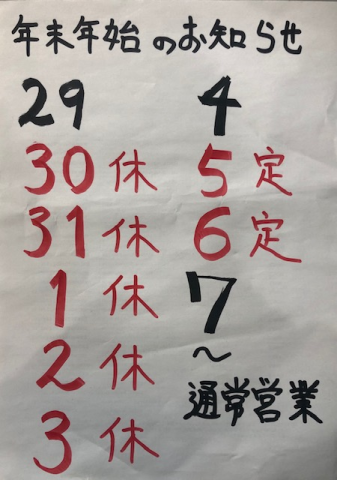 年末年始のお知らせ
29
30 休
31 休
1 休
2 休
3 休
4
5 定
6 定
7
〜
通常営業